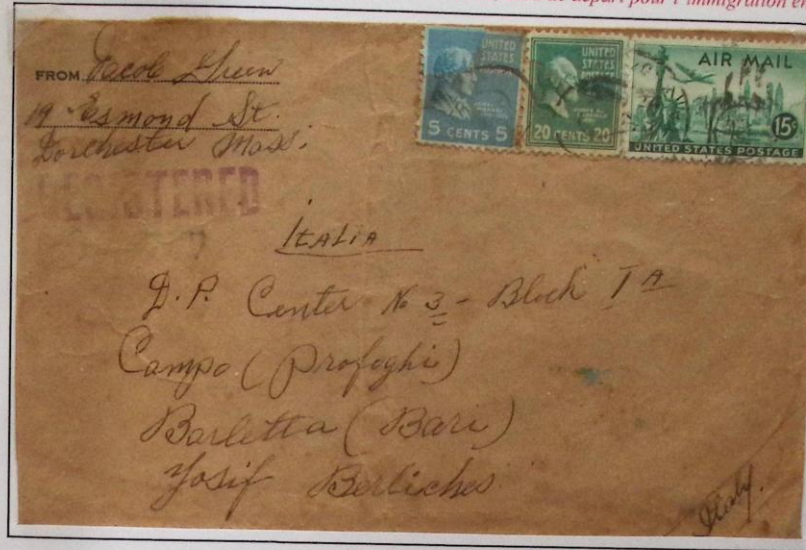 départ pour l'immigration en
FROM Jacob Green
19 Esmond St.
Dorchester Mass.
REGISTERED
UNITED STATES POSTAGE
5 CENTS 5
UNITED STATES POSTAGE
20 CENTS 20
AIR MAIL
15¢
UNITED STATES POSTAGE
ITALIA
D.P. Center No 3 - Block I A
Campo (Profoghi)
Barletta (Bari)
Yosif Berliches
Italy.